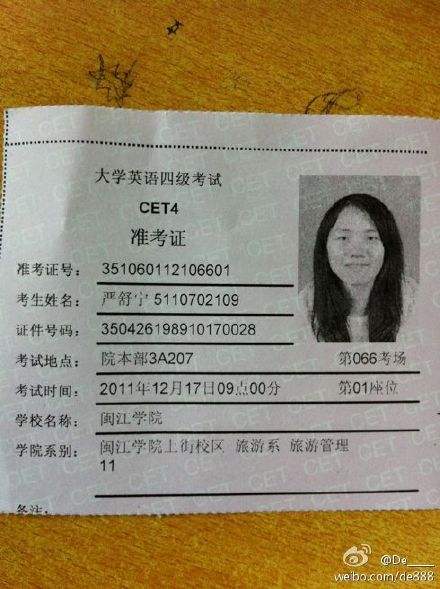 大学英语四级考试
CET4
准考证
准考证号： 351060112106601
考生姓名： 严舒宁 5110702109
证件号码： 350426198910170028
考试地点： 院本部3A207 第066考场
考试时间： 2011年12月17日09点00分 第01座位
学校名称： 闽江学院
学院系别： 闽江学院上街校区 旅游系 旅游管理
11
备注：
@De____
weibo.com/de888